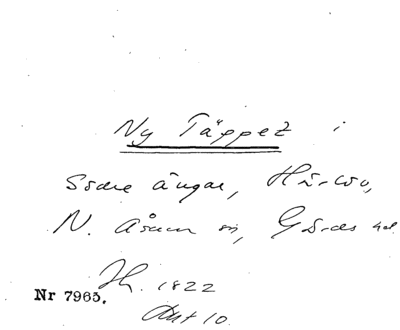 Ny Täppet i
Södre ängar, Hårlösa,
N. Åsum sn, Gärds hd.
Jh. 1822
Akt 10
Nr 7965.